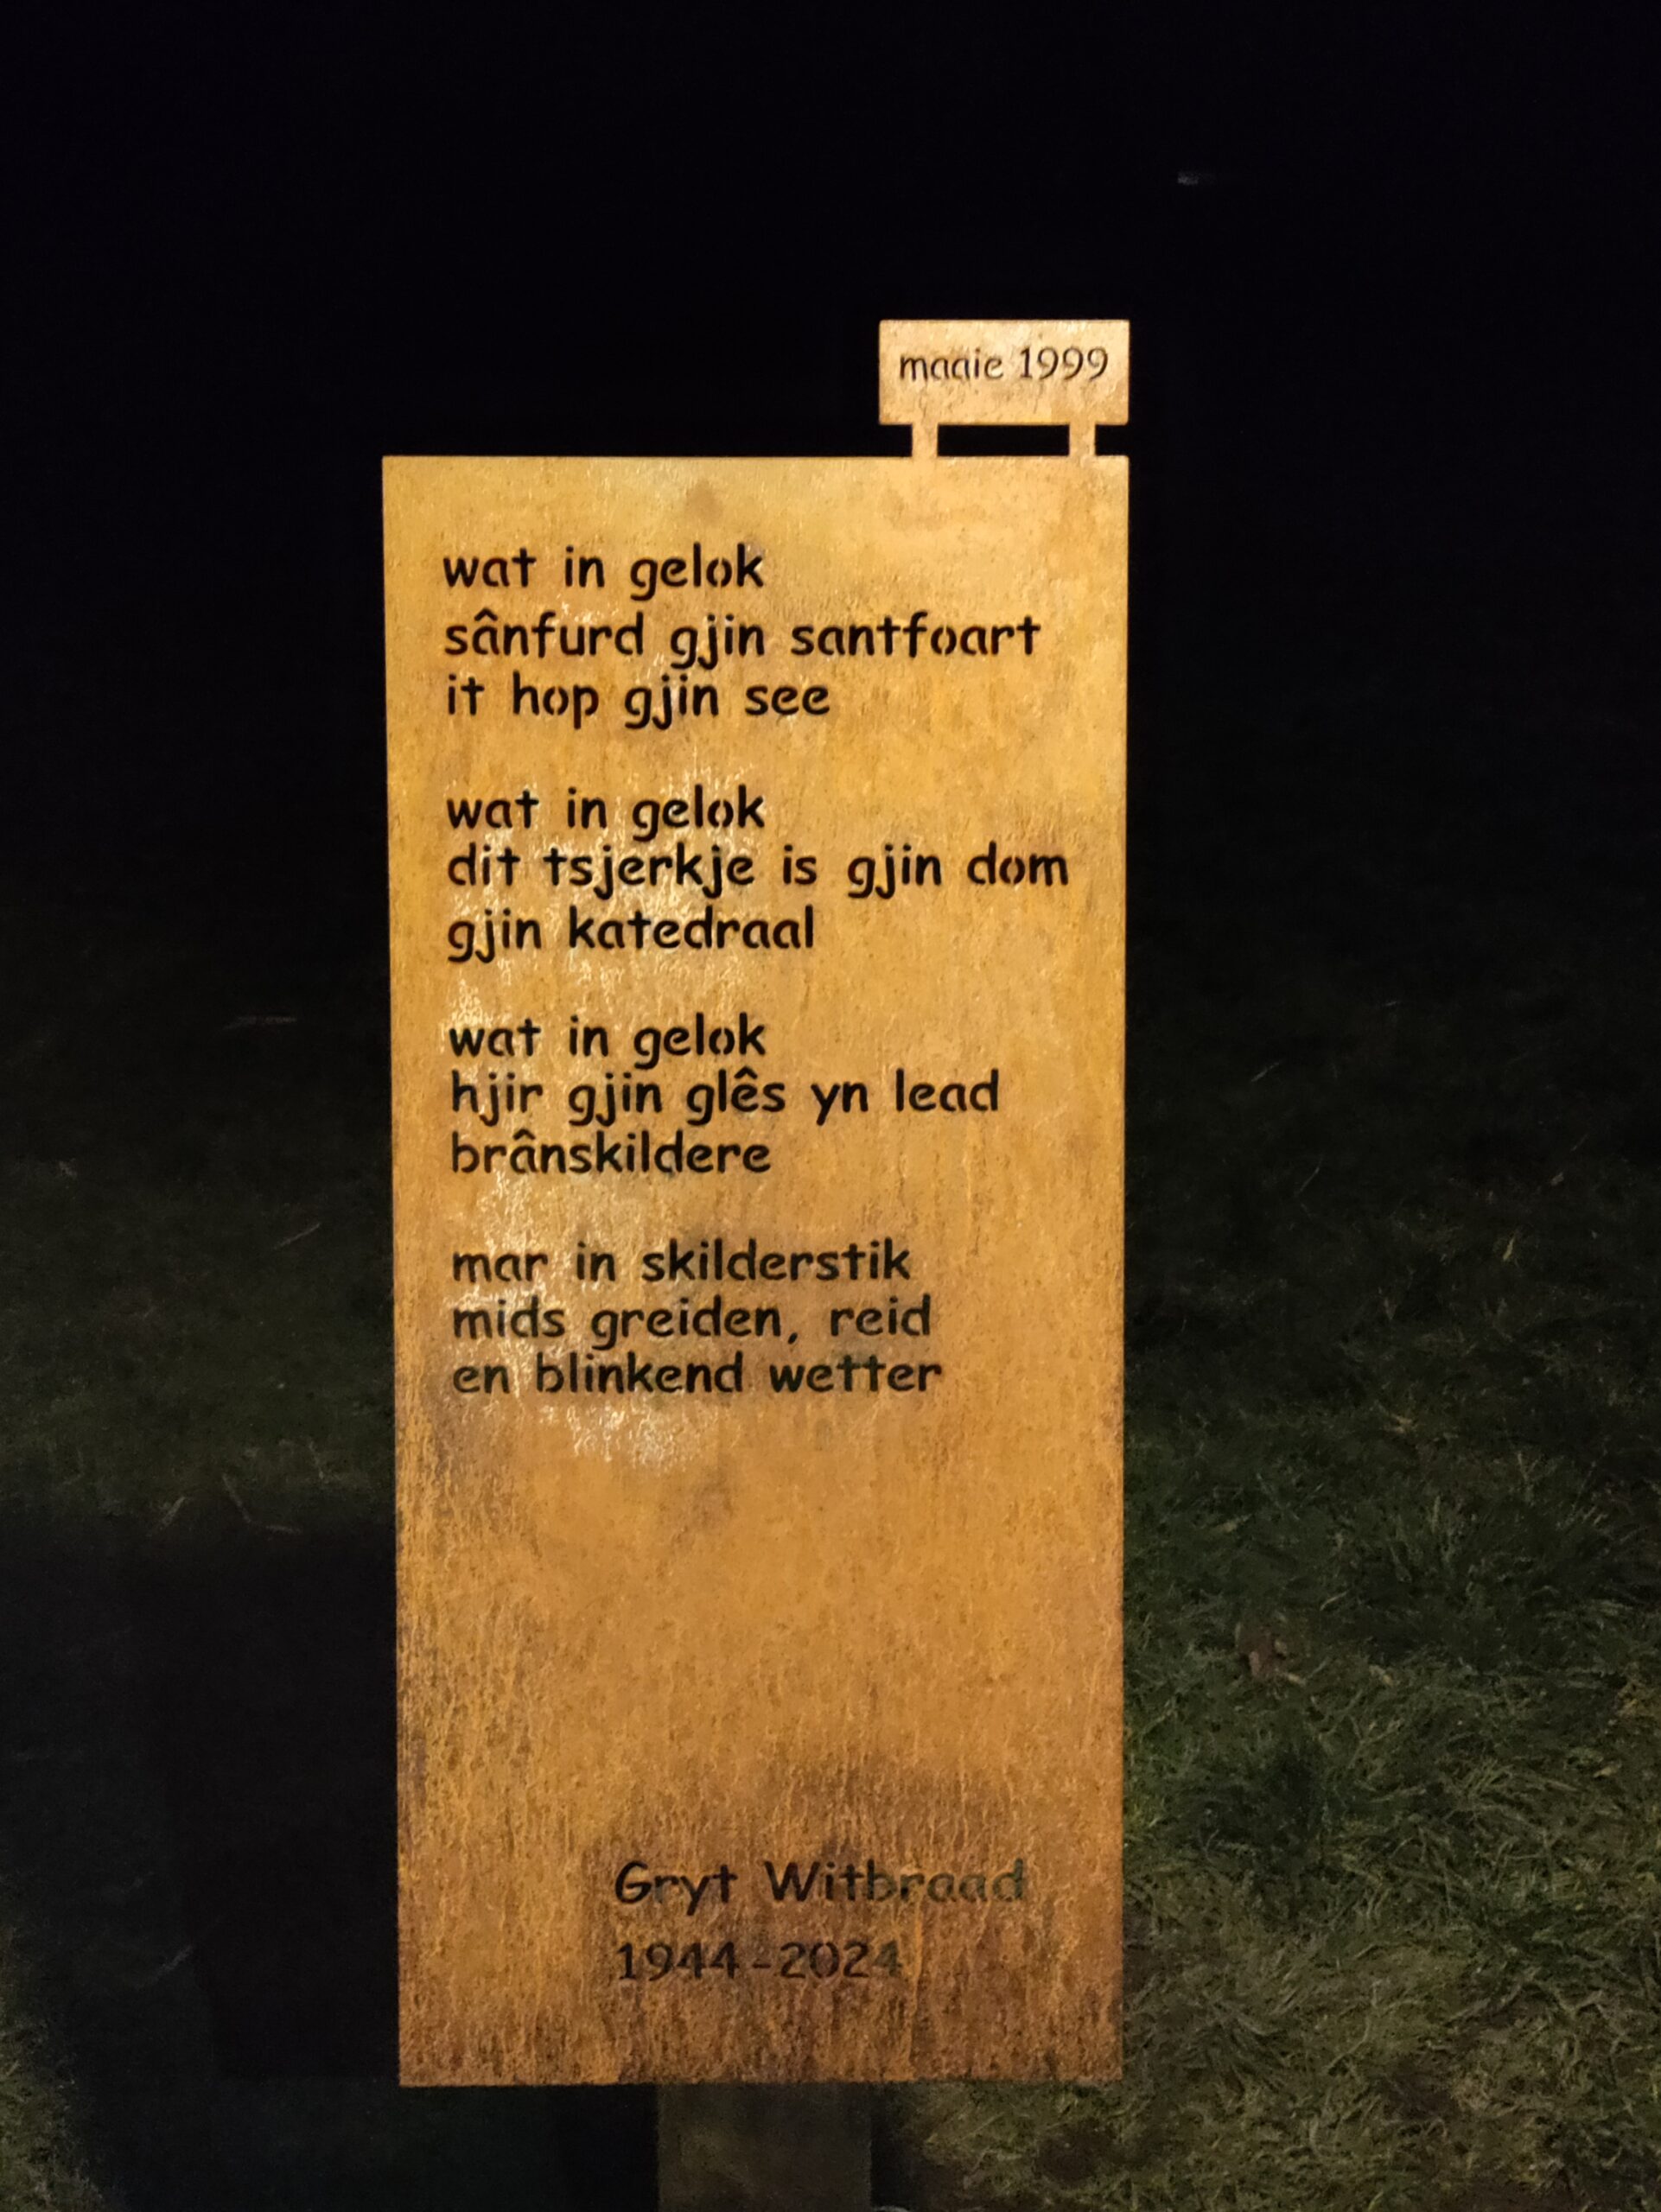 maaie 1999
wat in gelok
sânfurd gjin santfoart
it hop gjin see
wat in gelok
dit tsjerkje is gjin dom
gjin katedraal
wat in gelok
hjir gjin glês yn lead
brânskildere
mar in skilderstik
mids greiden, reid
en blinkend wetter
Gryt Witbraad
1944-2024